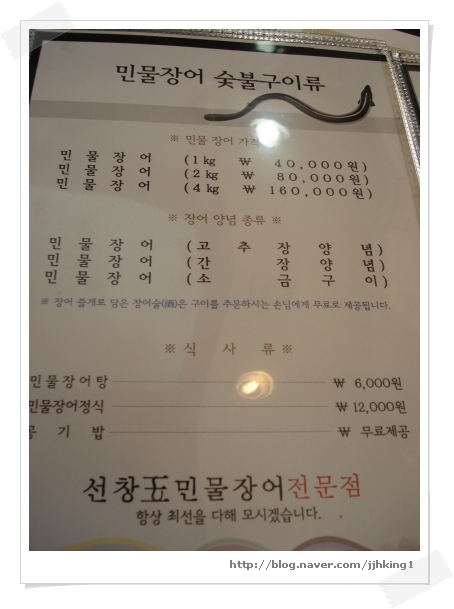 민물장어 숯불구이류
※ 민물 장어 가격
민 물 장 어 (1 kg ₩ 40,000원)
민 물 장 어 (2 kg ₩ 80,000원)
민 물 장 어 (4 kg ₩ 160,000원)
※ 장어 양념 종류 ※
민 물 장 어 (고 추 장 양 념)
민 물 장 어 (간 장 양 념)
민 물 장 어 (소 금 구 이)
※ 장어 쓸개로 담은 장어술(酒)은 구이를 주문하시는 손님에게 무료로 제공됩니다.
※ 식 사 류 ※
민물장어탕 ₩ 6,000원
민물장어정식 ₩ 12,000원
공 기 밥 ₩ 무료제공
선창玉민물장어전문점
항상 최선을 다해 모시겠습니다.
http://blog.naver.com/jjhking1